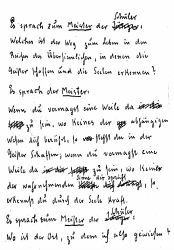 Es sprach zum Meister der Schüler:
Welches ist der Weg zum Leben in den
Reichen des Übersinnlichen, in denen die
Geister schaffen und die Seelen erkennen?
Es sprach der Meister:
Wenn du vermagst eine Weile da
zu sein, wo Keines der abhängigen
Wesen dich berührt, so der in der
Geister Schaffen; wenn du vermagst eine
Weile da zu sein, wo Keines
der wahrnehmenden so
erkennst du durch der Seele Kraft.
Es sprach zum Meister der Schüler:
Wo ist der Ort, zu dem ich also gewiesen